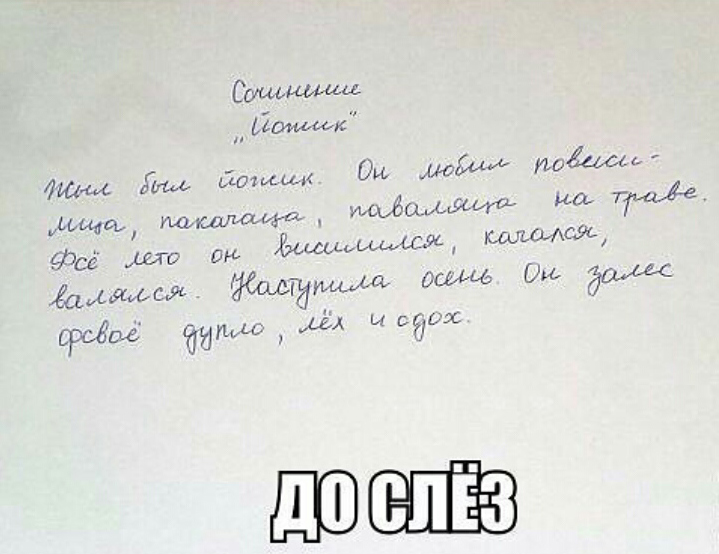 Сочинение
„Йожик"
Жыл был йожик. Он любил повеси-
лица, пакачаца, паваляца на траве.
Фсё лето он висилился, качался,
валялся. Наступила осень. Он залес
фсвоё дупло, лёх и сдох.
ДО СЛЁЗ